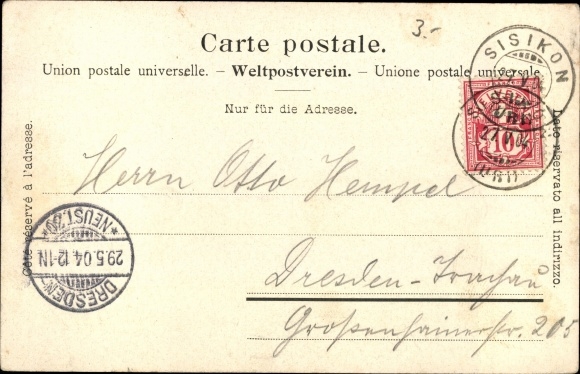 3.-
Carte postale.
Union postale universelle. – Weltpostverein. – Unione postale universale
Nur für die Adresse.
SISIKON
10
27.V.04
(URI)
Côté réservé à l'adresse.
Lato riservato all indirizzo.
Herrn Otto Hempel
Dresden-Trachau
Großenhainerstr. 205
DRESDEN
29.5.04.12-1N
*NEUST.30*